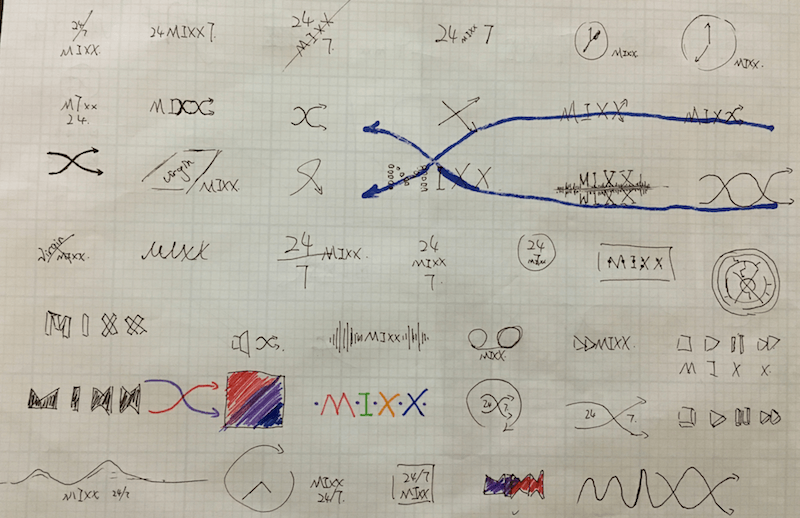 24/7
MIXX.
24MIXX7.
24
MIXX
7.
24 MIXX 7
MIXX
MIXX.
M7xx
24.
MIXX
MIXX
MIXX
Virgin
MIXX
IXX
MIXX
MIXX
Virgin
MIXX.
MIXX
24
7
MIXX.
24
MIXX
7.
24
7
MIXX
MIXX
MIXX
MIXX
MIXX
MIXX.
M I X X
·M·I·X·X·
24 7
24 7.
MIXX 24/7
MIXX
24/7.
24/7
MIXX